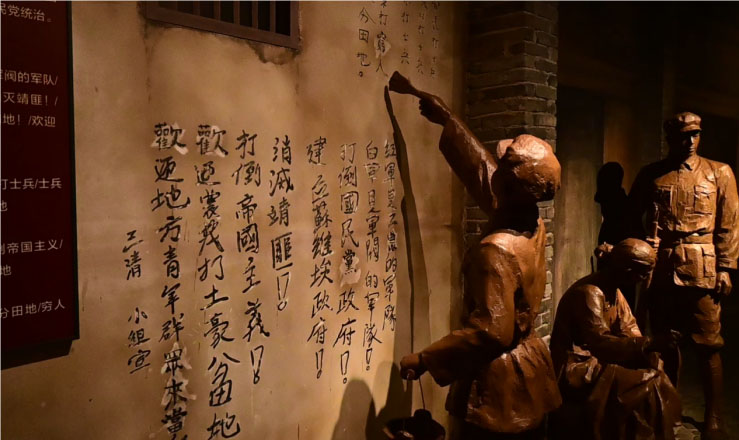 民党统治。
阀的军队/
灭靖匪！/
地！/欢迎
打士兵/士兵
地
倒帝国主义/
地
分田地/穷人
打窮人
分田地。
紅軍是工農的軍隊
白軍是軍閥的軍隊！
打倒國民黨政府！
建立蘇維埃政府！
消滅靖匪！
打倒帝國主義！
歡迎農民打土豪分田地
歡迎地方青年群眾來當
三清 小組宣